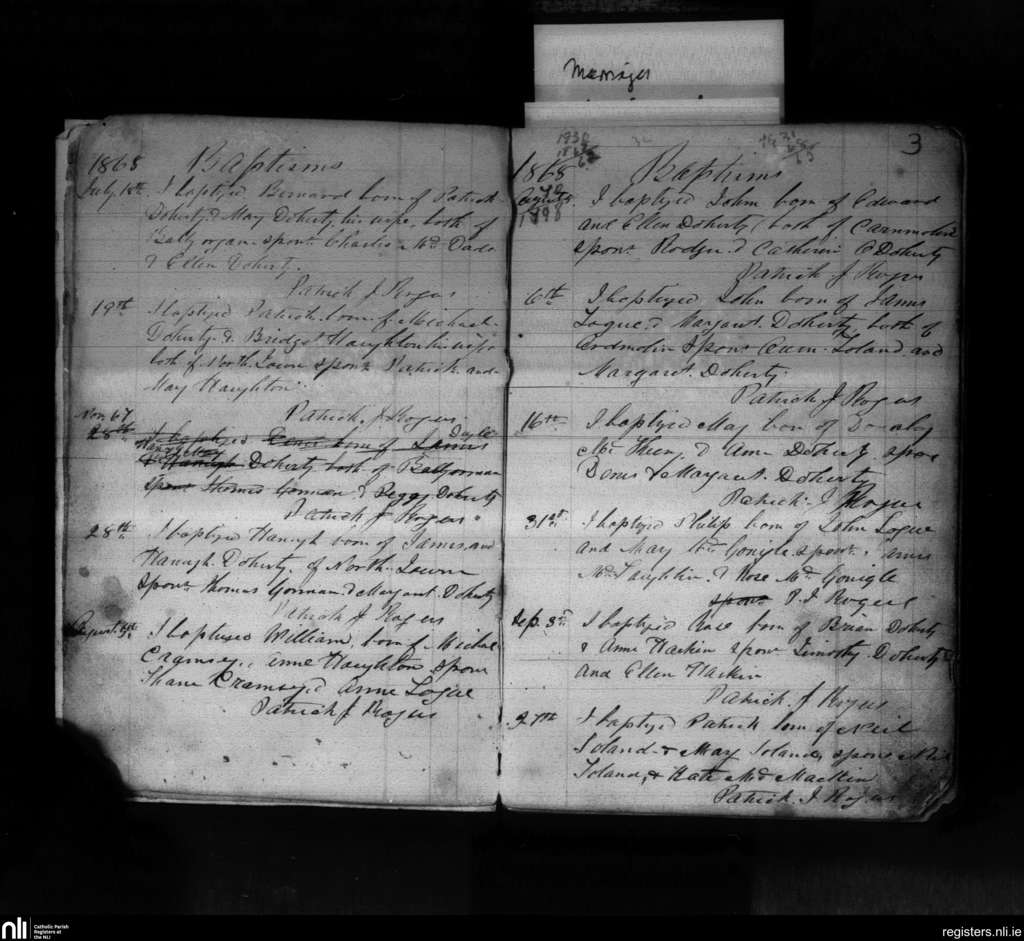 Marriages
1868 Baptisms
July 1st I baptized Bernard born of Patrick
Doherty & May Doherty, his wife, both of
Ballyorgan. spons Charles Mc Dade
& Ellen Doherty.
Patrick J Rogus
19th I baptized Patrick born of Michael
Doherty & Bridget Haughton his wife
both of North Town spons Patrick and
May Haughton
Patrick J Rogus
Nov 67
28th I baptized born of James
Doyle
& Hanagh Doherty both of Ballyorman
spons Thomas Gorman & Peggy Doherty
Patrick J Rogus
28th I baptized Hanagh born of James and
Hanagh Doherty of North Town
spons Thomas Gorman & Margaret Doherty
Patrick J Rogus
August I baptised William, born of Michael
Cramsey, Anne Haughton spons
Shane Cramsey & Anne Logue
Patrick J Rogus
3
1868 Baptisms
August I baptized John born of Edward
and Ellen Doherty (both of Carnmalin
spons Rodger & Catherin O Doherty
Patrick J Rogus
6th I baptized John born of James
Logue & Margaret Doherty, both of
spons Toland and
Margaret Doherty
Patrick J Rogus
16th I baptized May born of
Mc & Ann Doherty, spons
Denis & Margaret Doherty
Patrick J Rogus
31st I baptized Philip born of John Logue
and May Mc Gonigle spons James
Mc Laughlin & Rose Mc Gonigle
spons P. J Rogus
Sep. 3rd I baptized born of Brian Doherty
& Anne Harkin spons Timothy Doherty
and Ellen Harkin
Patrick J Rogus
27th I baptized Patrick born of Neil
Toland & May Toland, spons Neil
Toland, & Kate Mc Macken
Patrick J Rogus
nli Catholic Parish
Registers at
the NLI
registers.nli.ie